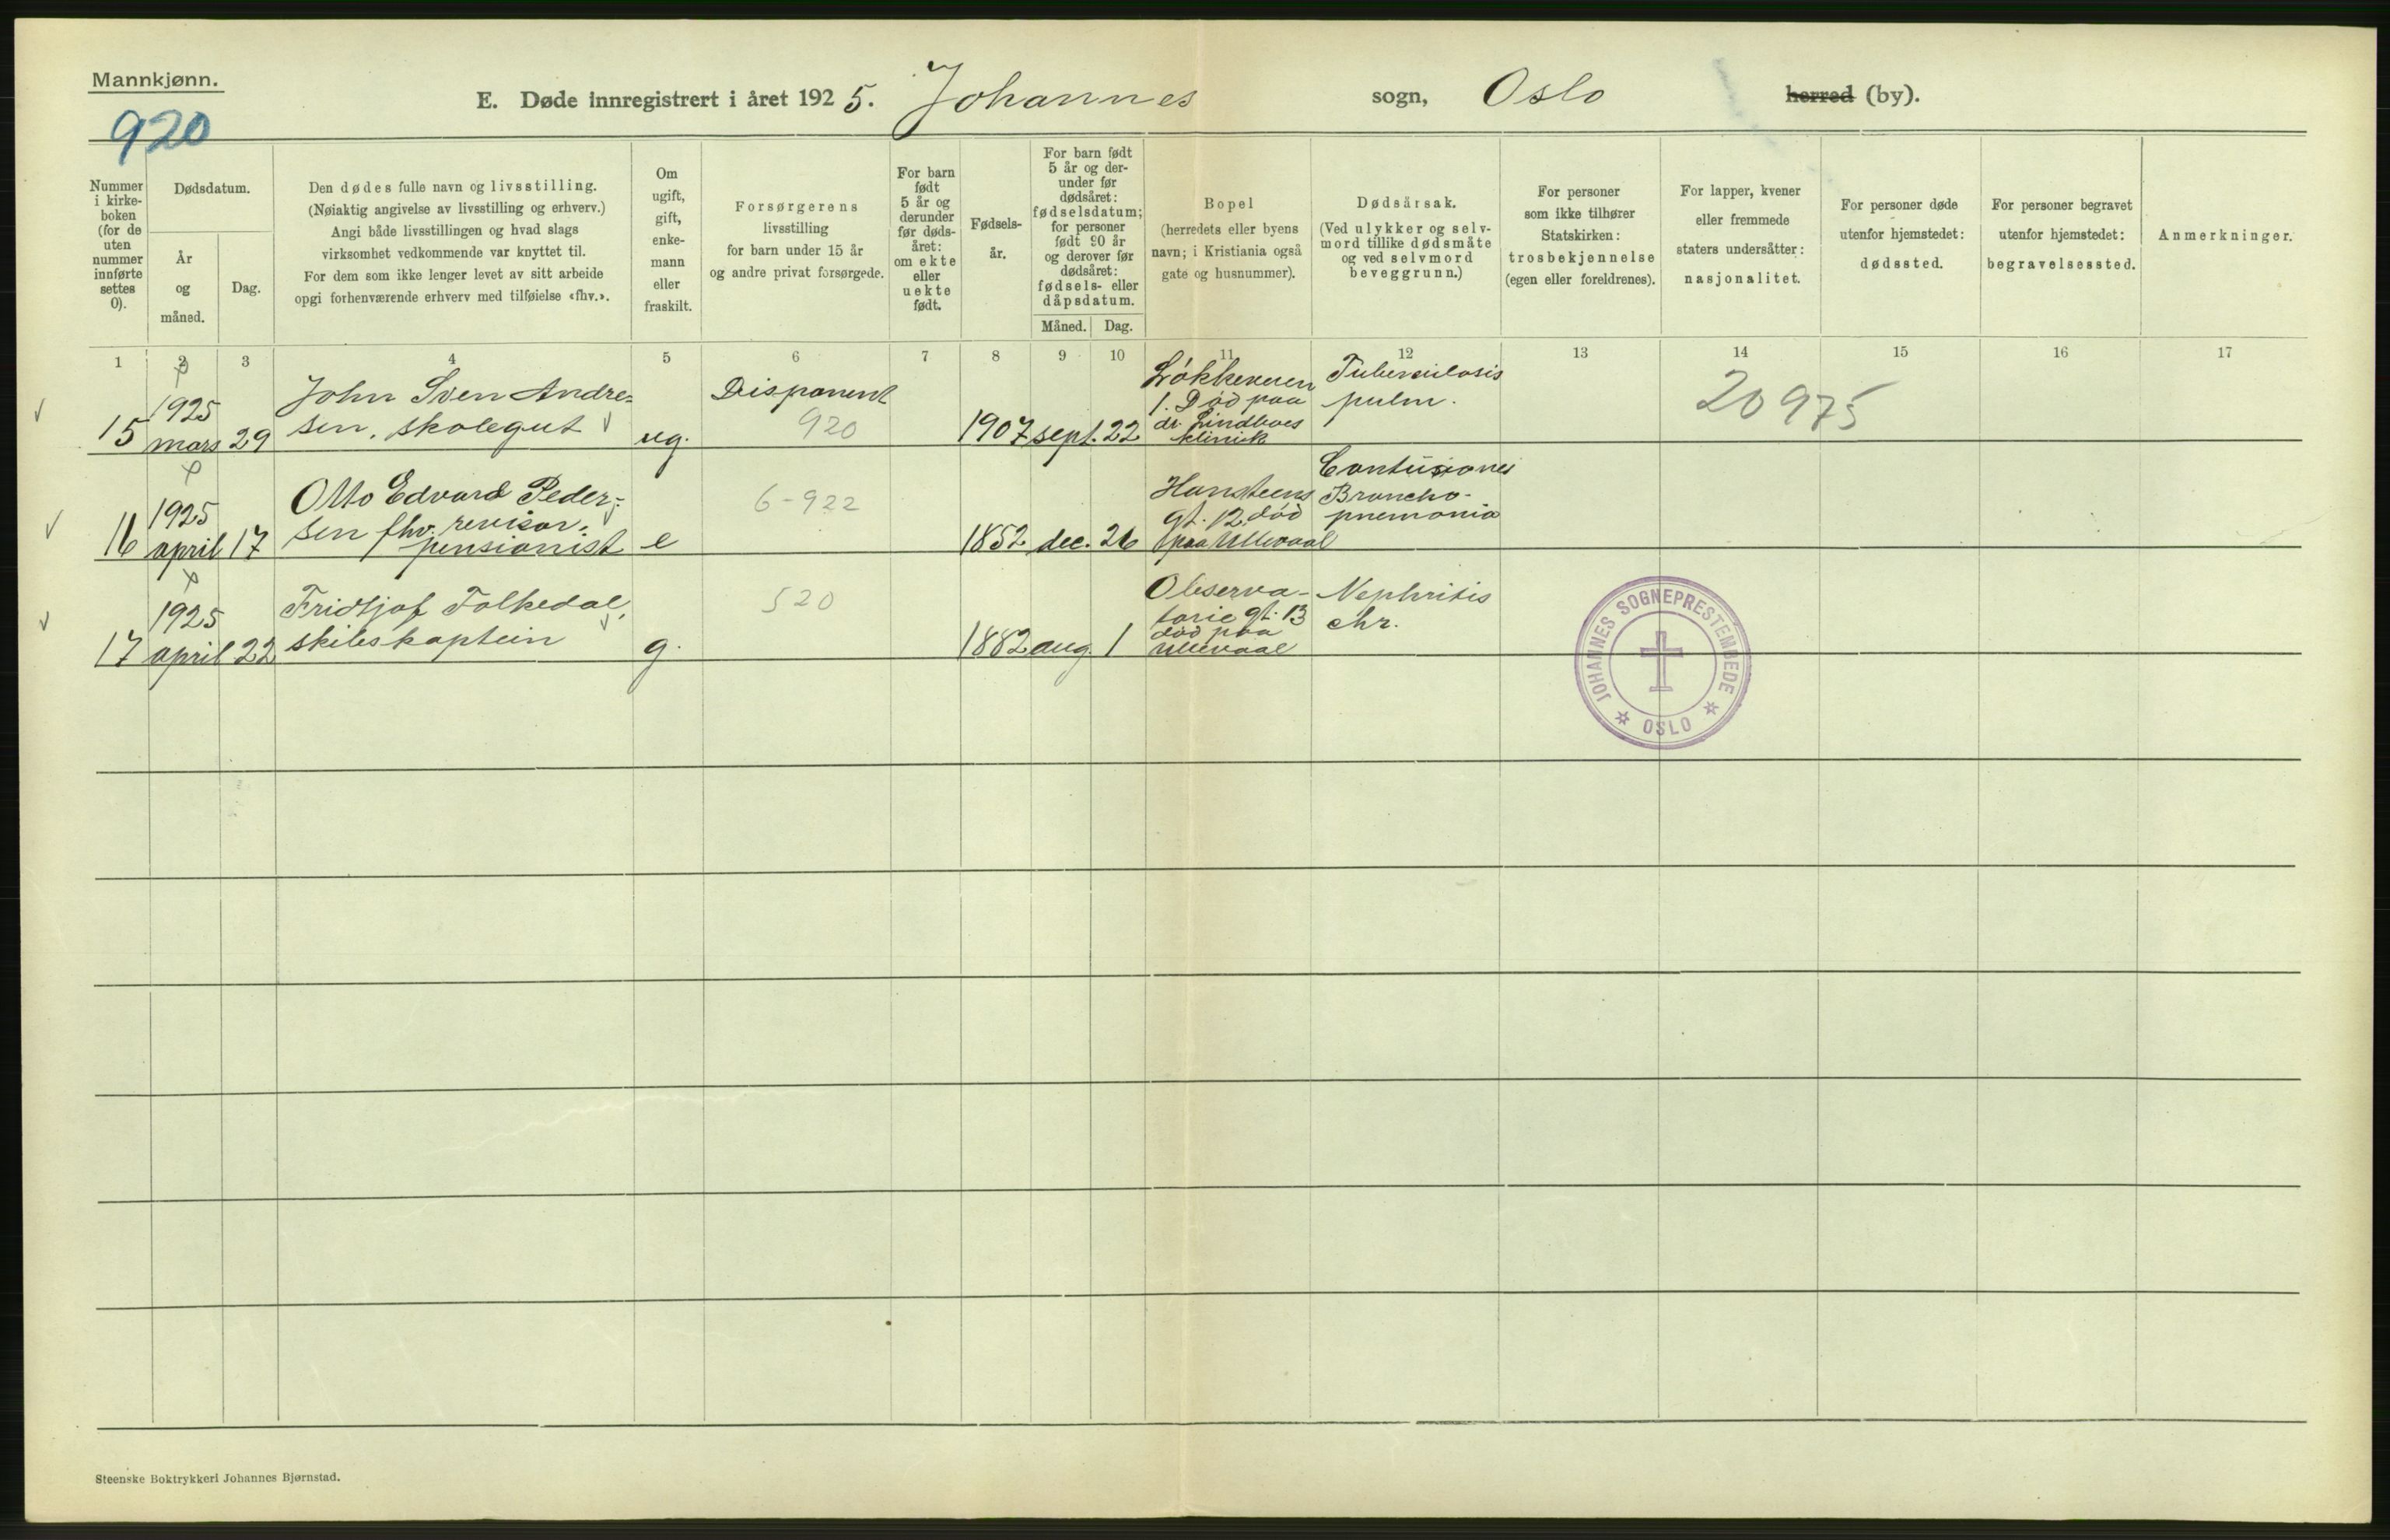 Mannkjønn.
920
E. Døde innregistrert i året 1925. Johannes sogn, Oslo herred (by).
Nummer i kirke-boken (for de uten nummer innførte settes 0).
Dødsdatum.
År og måned.
Dag.
Den dødes fulle navn og livsstilling.
(Nøiaktig angivelse av livsstilling og erhverv.)
Angi både livsstillingen og hvad slags
virksomhet vedkommende var knyttet til.
For dem som ikke lenger levet av sitt arbeide
opgi forhenværende erhverv med tilføielse «fhv.».
Om ugift, gift, enke-mann eller fraskilt.
Forsørgerens
livsstilling
for barn under 15 år
og andre privat forsørgede.
For barn født 5 år og derunder før døds-året: om ekte eller uekte født.
Fødsels-år.
For barn født 5 år og der-under før dødsåret: fødselsdatum; for personer født 90 år og derover før dødsåret: fødsels- eller dåpsdatum.
Måned.
Dag.
Bopel
(herredets eller byens
navn; i Kristiania også
gate og husnummer).
Dødsårsak.
(Ved ulykker og selv-
mord tillike dødsmåte
og ved selvmord
beveggrunn.)
For personer
som ikke tilhører
Statskirken:
trosbekjennelse
(egen eller foreldrenes).
For lapper, kvener
eller fremmede
staters undersåtter:
nasjonalitet.
For personer døde
utenfor hjemstedet:
dødssted.
For personer begravet
utenfor hjemstedet:
begravelsessted.
Anmerkninger.
1 2 3 4 5 6 7 8 9 10 11 12 13 14 15 16 17
15
1925
mars 29
John Sven Andre=
sen, skolegut
ug.
Disponent
920
1907 sept. 22
Løkkeveien
1. Død paa
dr. Lindboes
klinik
Tuberculosis
pulm.
20975
16
1925
april 17
Otto Edvard Peder-
sen fhv. revisor,
pensionist
e
6-922
1852 dec. 26
Hansteens
gt. 12. død
paa Ullevaal
Contusiones
Broncho-
pnemonia
17
1925
april 22
Fridtjof Folkedal,
skibskaptein
g.
520
1882 aug. 1
Observa-
torie gt. 13
død paa
Ullevaal
Nephritis
chr.
JOHANNES SOGNEPRESTEMBEDE
OSLO
Steenske Boktrykkeri Johannes Bjørnstad.